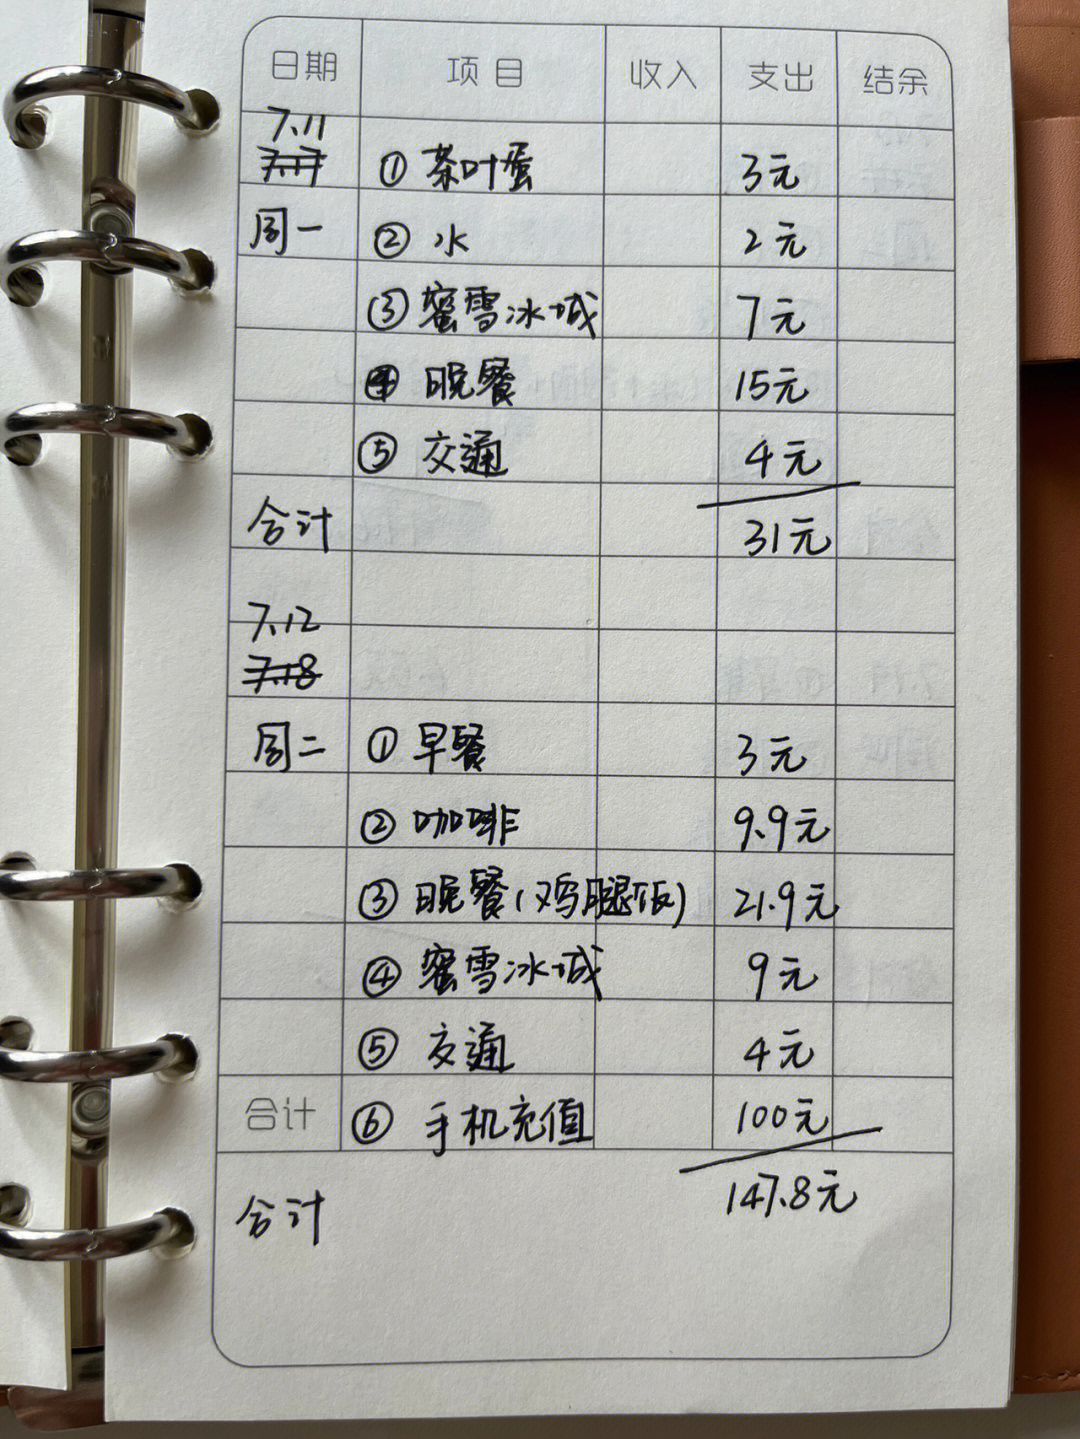 日期 项目 收入 支出 结余
7.11
7.17 ①茶叶蛋 3元
周一 ②水 2元
③蜜雪冰城 7元
④晚餐 15元
⑤交通 4元
合计 31元
7.12
7.18
周二 ①早餐 3元
②咖啡 9.9元
③晚餐(鸡腿饭) 21.9元
④蜜雪冰城 9元
⑤交通 4元
合计 ⑥手机充值 100元
合计 147.8元